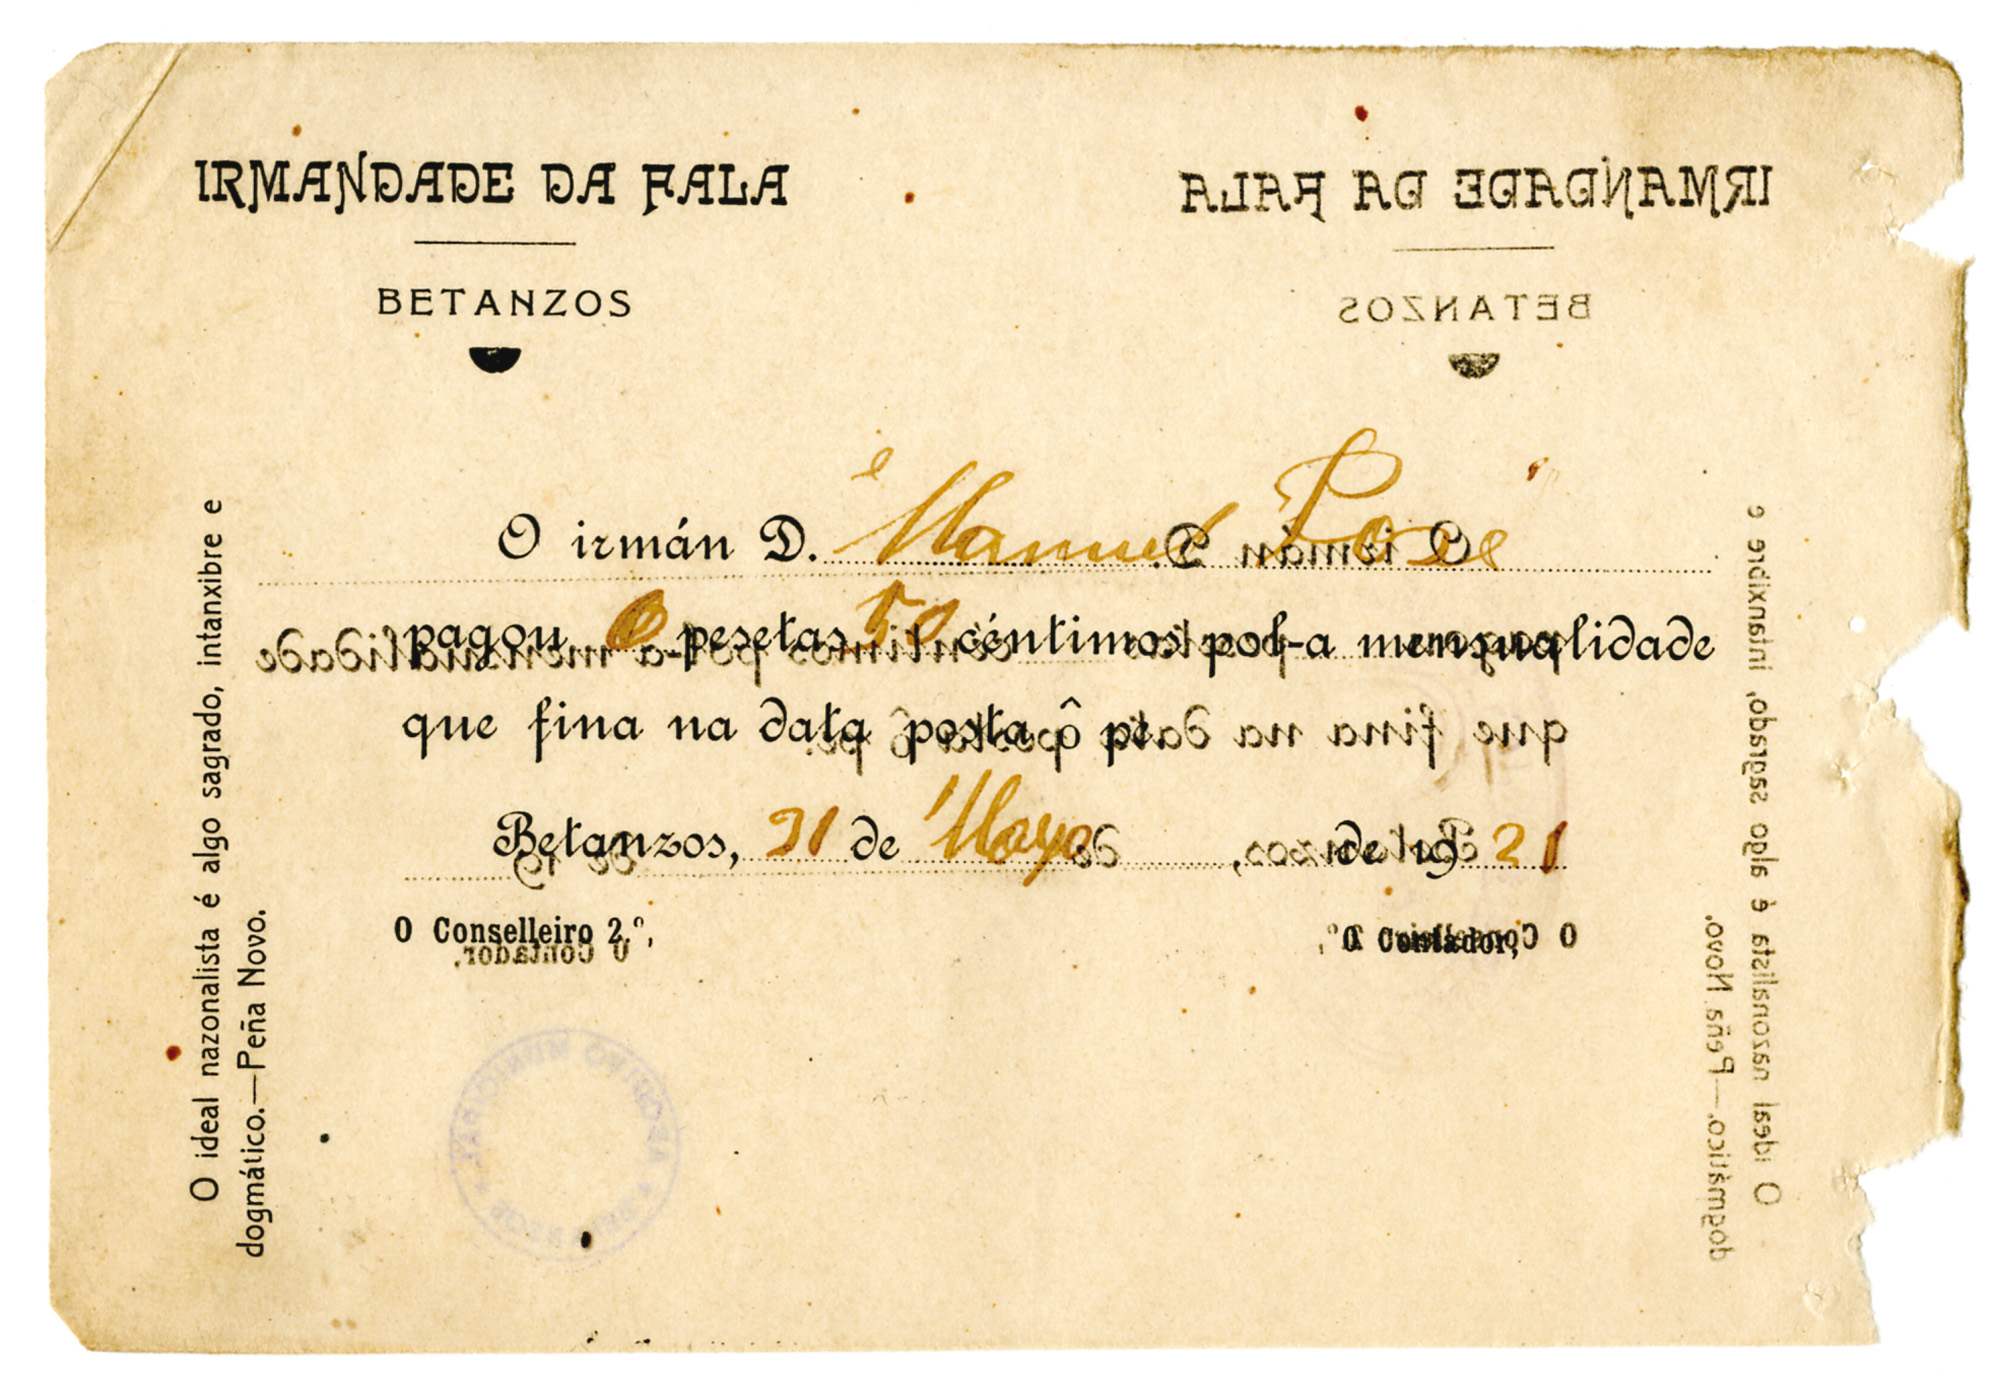 IRMANDADE DA FALA
BETANZOS
O irmán D. Manuel
pagou 0 pesetas 50 céntimos pol-a mensualidade
que fina na data posta ô pe.
Betanzos, 31 de Mayo de 1921
O Conselleiro 2.º,
O Contador,
O ideal nazonalista é algo sagrado, intanxibre e
dogmático.—Peña Novo.
ARQUIVO MUNICIPAL